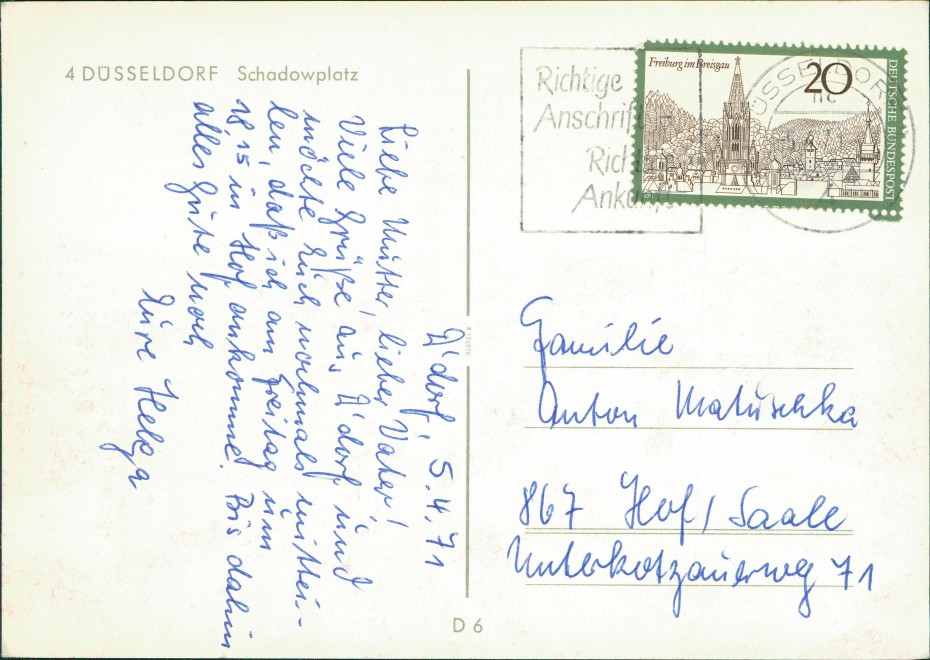 4 DÜSSELDORF Schadowplatz
D'dorf, 5.4.71
Liebe Mutter, lieber Vater!
Viele Grüße aus D'dorf und
möchte Euch nochmals mittei-
len, daß ich am Freitag um
18.15 in Hof ankomme. Bis dahin
alles Gute noch
Eure Helga
Richtige
Anschrift
Ankunft
Freiburg im Breisgau
20
DEUTSCHE BUNDESPOST
DÜSSELDORF
Familie
Anton Matuschka
867 Hof/Saale
Unterkotzauerweg 71
D 6